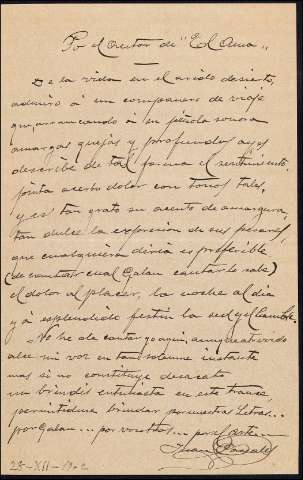 Por el autor de "El Ama"
De la vida en el árido desierto,
admiro á un compañero de viaje
que, arrancando á su péñola sonora
amargas quejas y profundos ayes
describe de tal forma el sentimiento,
pinta acerbo dolor con tonos tales,
y es tan grato su acento de amargura,
tan dulce la expresión de sus pesares,
que cualquiera diría es preferible
(de cantar cual Galan cantar le sabe)
el dolor al placer, la noche al dia
y á espléndido festin la sed y el hambre.
No he de cantar yo aquí, aunque atrevido
alce mi voz en tan solemne instante
mas si no constituye desacato
un brindis entusiasta en este trance,
permitidme brindar por nuestras Letras...
por Galan... por vosotros... por el Arte...
Juan
23-XII-1902